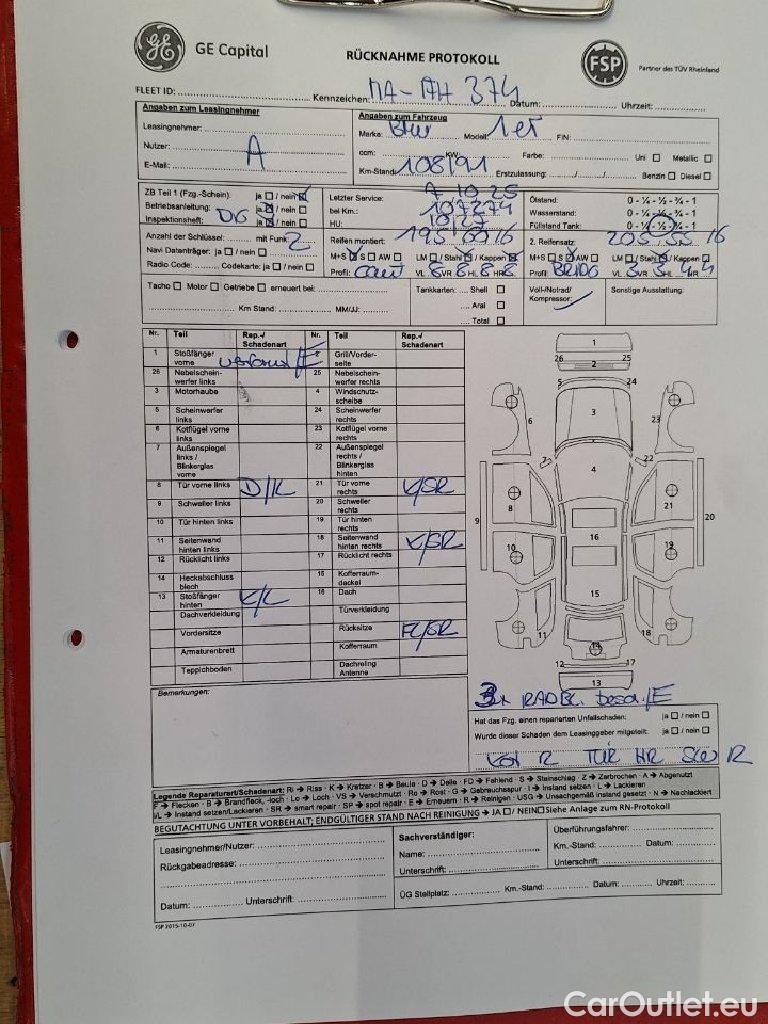 GE GE Capital RÜCKNAHME PROTOKOLL FSP Partner des TÜV Rheinland
FLEET ID: Kennzeichen: MA-AH 374 Datum: Uhrzeit:
Angaben zum Leasingnehmer
Angaben zum Fahrzeug
Leasingnehmer: Marke: BMW Modell: 1er FIN:
Nutzer: A ccm: KW: Farbe: Uni Metallic
E-Mail: Km-Stand: 108191 Erstzulassung: Benzin Diesel
ZB Teil 1 (Fzg.-Schein) ja / nein Letzter Service: 10 25 Ölstand: 0 - ¼ - ½ - ¾ - 1
Betriebsanleitung: ja / nein bei Km.: 107274 Wasserstand: 0 - ¼ - ½ - ¾ - 1
Inspektionsheft: ja / nein HU: 10/27 Füllstand Tank: 0 - ¼ - ½ - ¾ - 1
Anzahl der Schlüssel: mit Funk: 2 Reifen montiert: 195 60 16 2. Reifensatz: 205 55 16
Navi Datenträger: ja / nein M+S S AW LM / Stahl / Kappen M+S S AW LM / Stahl / Kappen
Radio Code: Codekarte: ja / nein Profil: Conti VL 8 VR 8 HL 8 HR 8 Profil BRIDG VL VR HL HR
Tacho Motor Getriebe erneuert bei: Tankkarten: Shell Voll-/Notrad/ Sonstige Ausstattung:
Aral Kompressor:
Km Stand: MM/JJ: Total
Nr. Teil Rep.-/ Schadenart Nr. Teil Rep.-/ Schadenart
1 Stoßfänger vorne 2 Grill/Vorderseite
26 Nebelscheinwerfer links 25 Nebelscheinwerfer rechts
3 Motorhaube 4 Windschutzscheibe
5 Scheinwerfer links 24 Scheinwerfer rechts
6 Kotflügel vorne links 23 Kotflügel vorne rechts
7 Außenspiegel links / Blinkerglas vorne 22 Außenspiegel rechts / Blinkerglas hinten
8 Tür vorne links D/K 21 Tür vorne rechts K/SR
9 Schweller links 20 Schweller rechts
10 Tür hinten links 19 Tür hinten rechts
11 Seitenwand hinten links 18 Seitenwand hinten rechts K/SR
12 Rücklicht links 17 Rücklicht rechts
14 Heckabschlussblech 15 Kofferraumdeckel
13 Stoßfänger hinten K/L 16 Dach
Dachverkleidung Türverkleidung
Vordersitze Rücksitze FL/SR
Armaturenbrett Kofferraum
Teppichboden Dachreling Antenne
1
26 25
2
5 24
3
6 23
7 22
4
8 21
9 20
16
10 19
15
11 18
14
12 17
13
Bemerkungen:
3x RADBL. besch./E
Hat das Fzg. einen reparierten Unfallschaden: ja / nein
Wurde dieser Schaden dem Leasinggeber mitgeteilt: ja / nein
TÜR HR
Legende Reparaturart/Schadenart: Ri → Riss - K → Kratzer - B → Beule - D → Delle - FD → Fehlend - S → Steinschlag - Z → Zerbrochen - A → Abgenutzt
F → Flecken - B → Brandfleck, -loch - Lo → Loch - VS → Verschmutzt - Ro → Rost - G → Gebrauchsspur - I → Instand setzen - L → Lackieren
I/L → Instand setzen/Lackieren - SR → smart repair - SP → spot repair - E → Erneuern - R → Reinigen - USG → Unsachgemäß instand gesetzt - N → Nachlackiert
BEGUTACHTUNG UNTER VORBEHALT; ENDGÜLTIGER STAND NACH REINIGUNG → JA / NEIN Siehe Anlage zum RN-Protokoll
Leasingnehmer/Nutzer: Sachverständiger: Überführungsfahrer:
Rückgabeadresse: Name: Km.-Stand: Datum:
Unterschrift: Unterschrift:
Datum: Unterschrift: ÜG Stellplatz: Km.-Stand: Datum: Uhrzeit:
FSP 2015-10-07
CarOutlet.eu